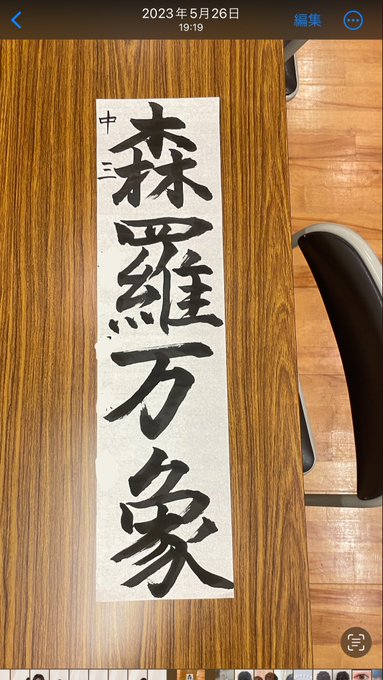 2023年5月26日
19:19
編集
森羅万象
中三